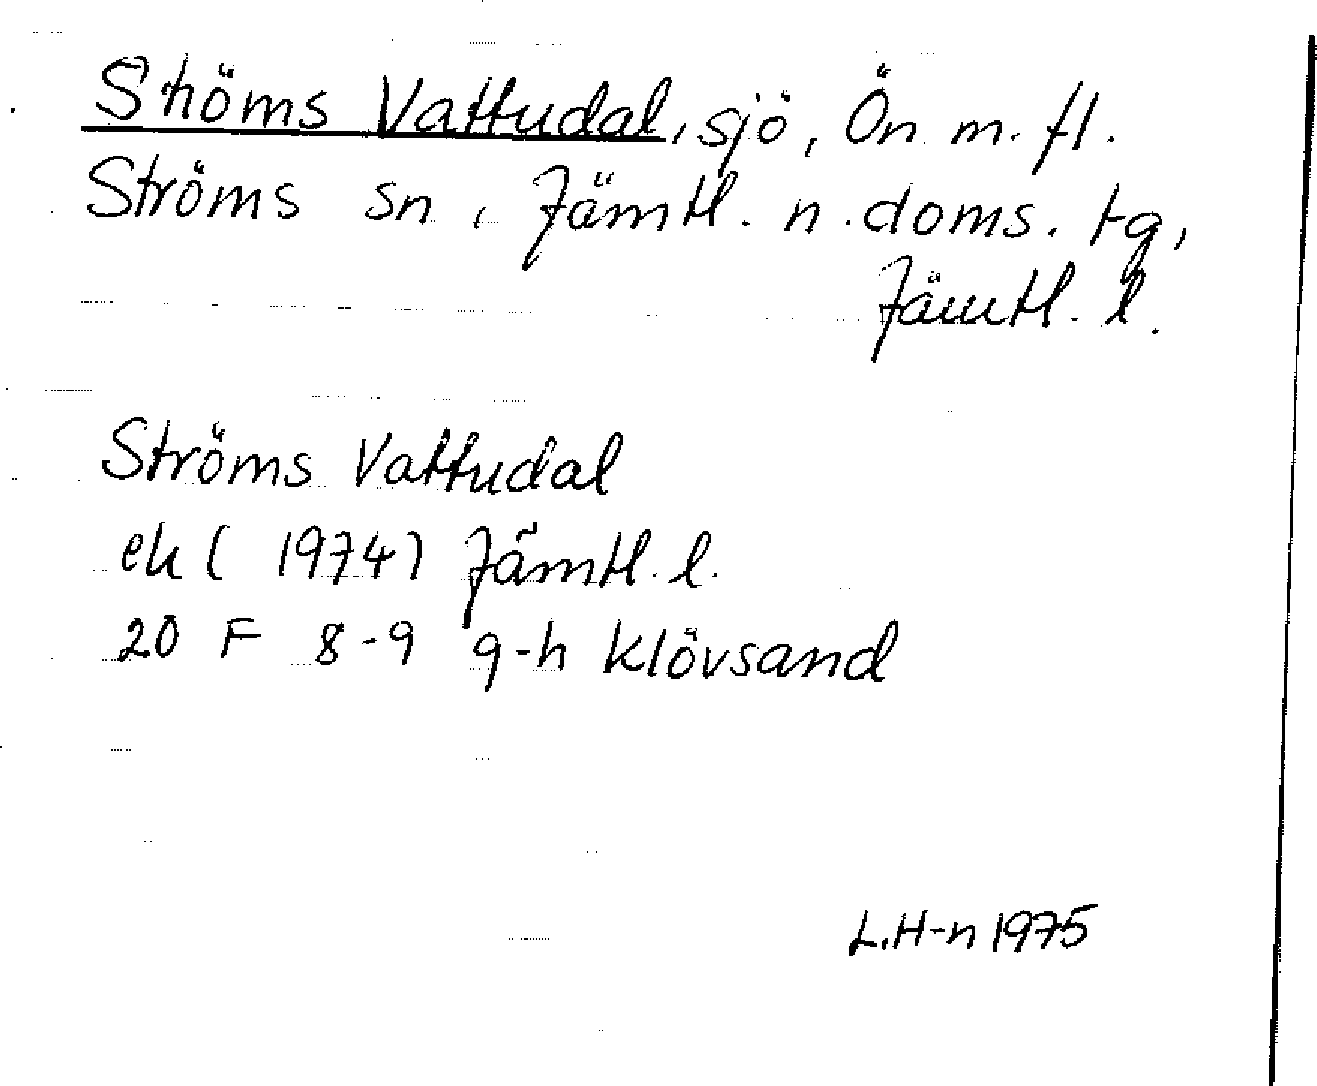 Ströms Vattudal, sjö, Ön m. fl.
Ströms sn, Jämtl. n. doms. tg,
Jämtl. l.
Ströms Vattudal
ek (1974) Jämtl. l.
20 F 8-9 g-h Klövsand
L.H-n 1975